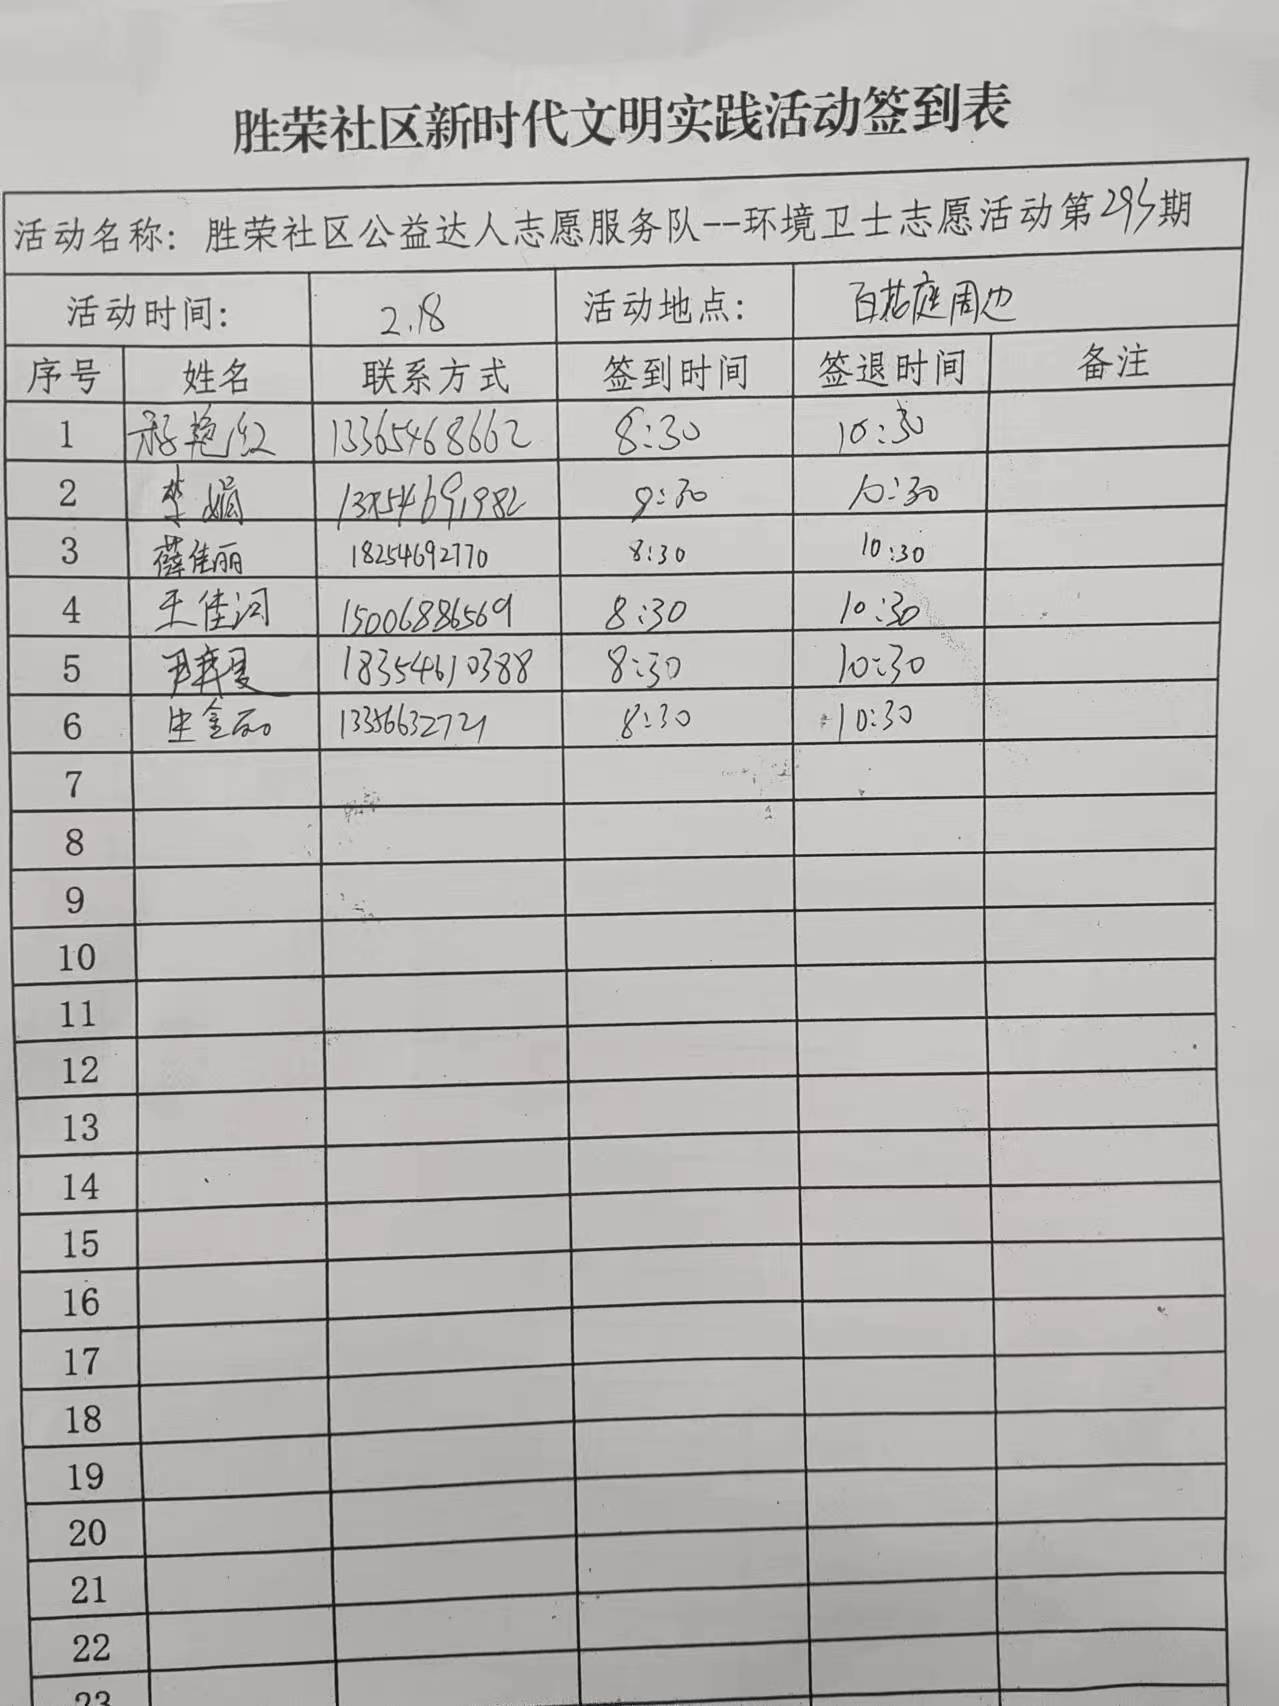 胜荣社区新时代文明实践活动签到表
活动名称：胜荣社区公益达人志愿服务队--环境卫士志愿活动第295期
活动时间： 2.18 活动地点： 百花庭周边
序号 姓名 联系方式 签到时间 签退时间 备注
1 艳红 13365468662 8:30 10:30
2 李娟 8:30 10:30
3 薛佳丽 18254692770 8:30 10:30
4 王佳 15006886569 8:30 10:30
5 18354610388 8:30 10:30
6 13356632721 8:30 10:30
7
8
9
10
11
12
13
14
15
16
17
18
19
20
21
22
23